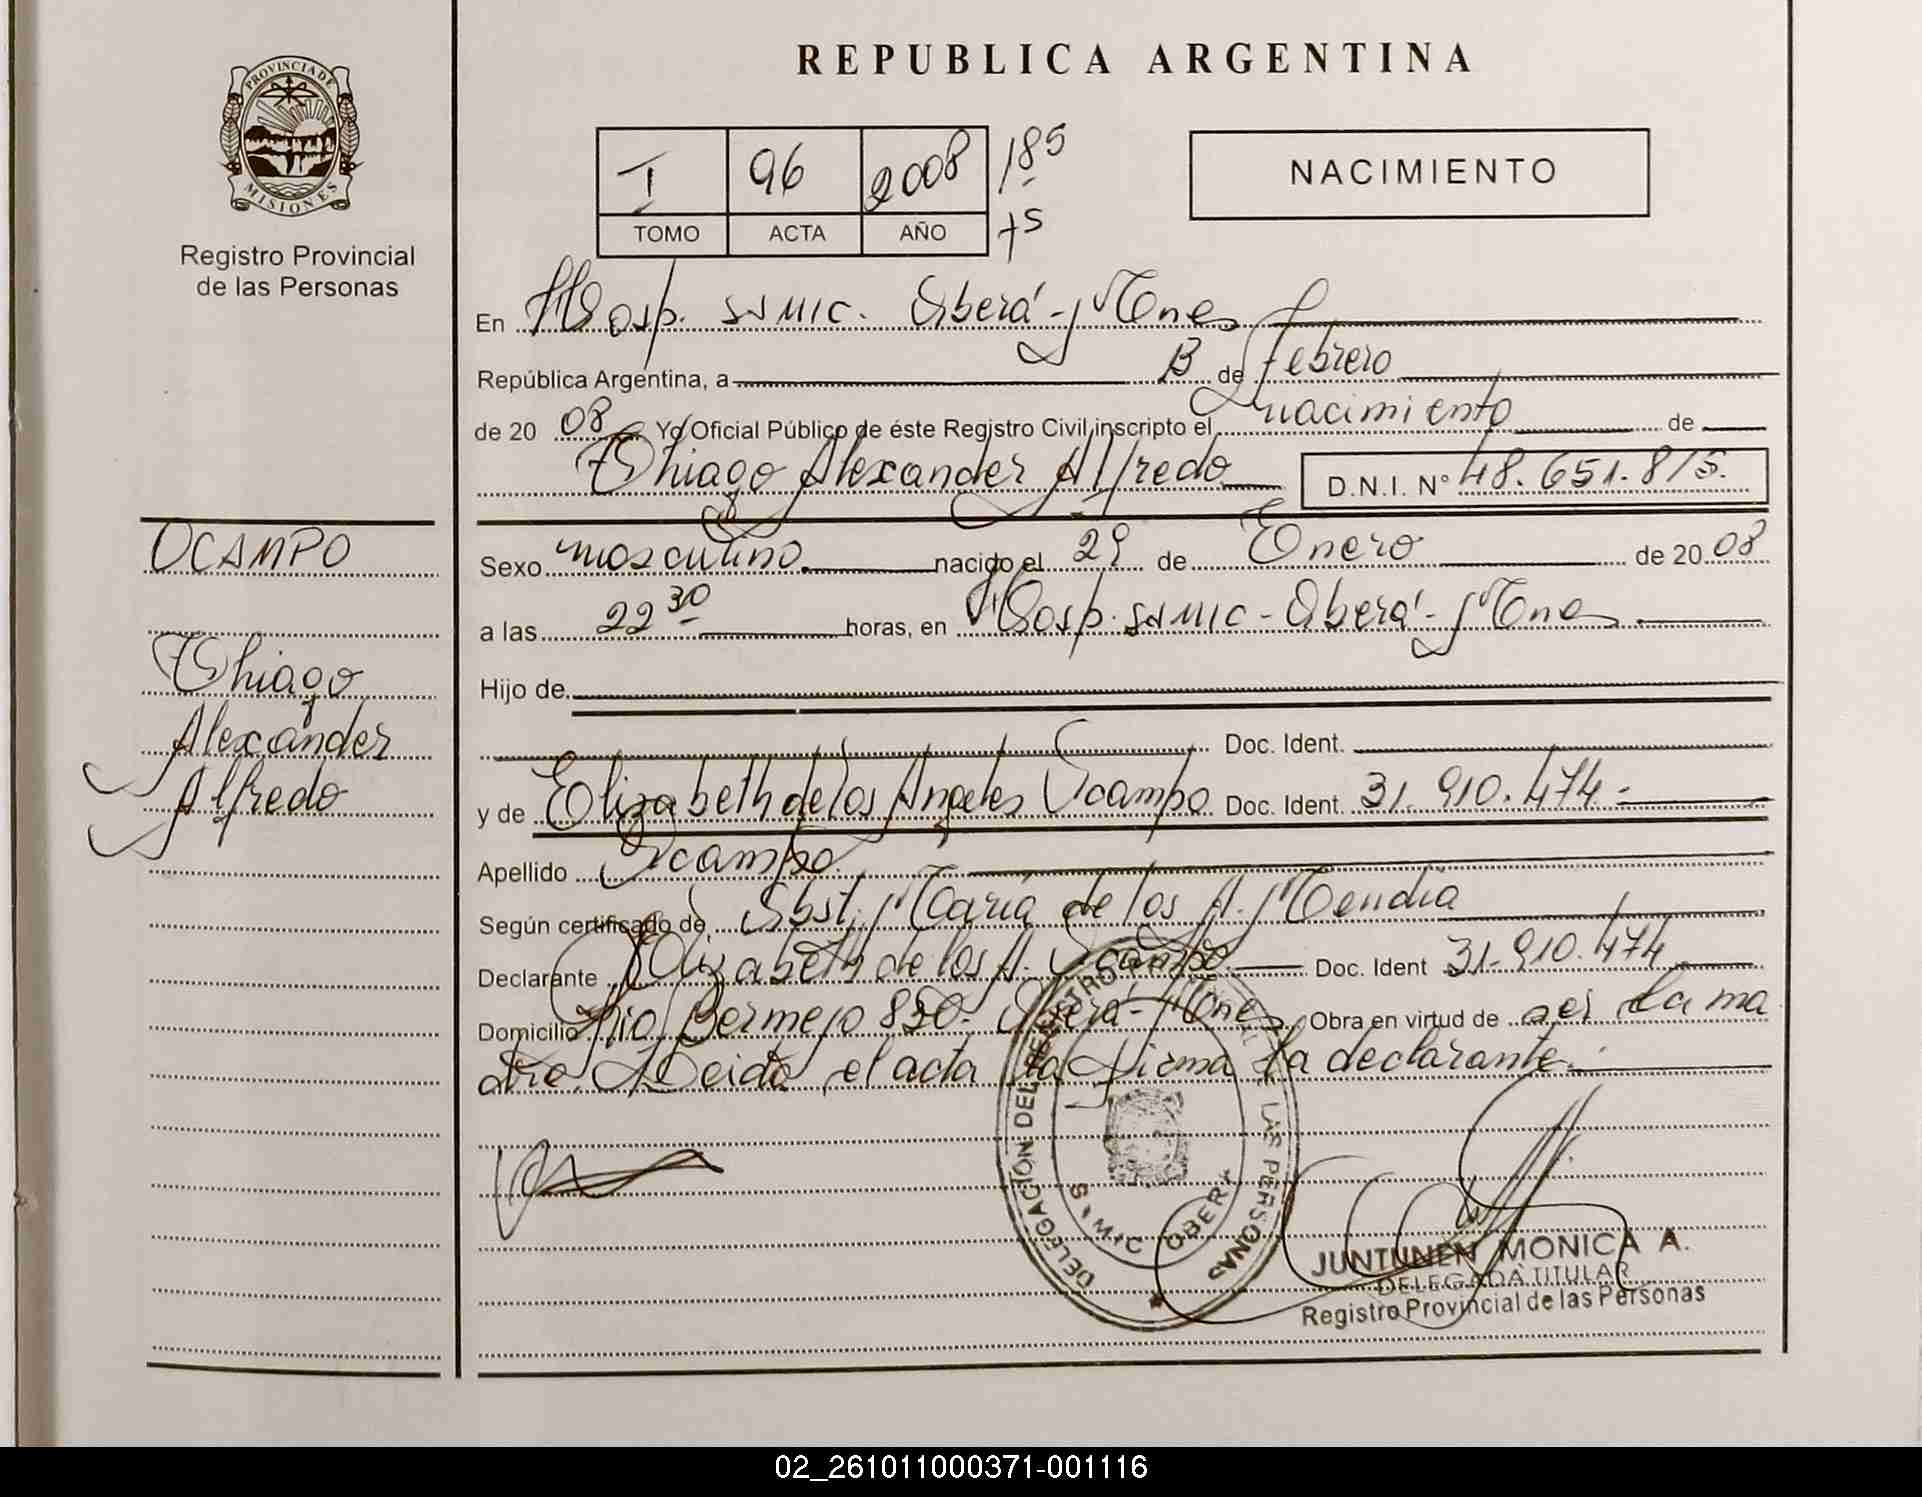 PROVINCIA DE
MISIONES
Registro Provincial
de las Personas
REPUBLICA ARGENTINA
I 96 2008 185
TOMO ACTA AÑO 75
NACIMIENTO
En Hosp. SAMIC. Oberá - Mnes
República Argentina, a de Febrero
de 20 08 Yo Oficial Público de éste Registro Civil inscripto el nacimiento de
Thiago Alexander Alfredo D.N.I. N° 48.651.815.
OCAMPO
Thiago
Alexander
Alfredo
Sexo masculino nacido el 29 de Enero de 20 08
a las 22 30 horas, en Hosp. SAMIC - Oberá - Mnes
Hijo de
Doc. Ident.
y de Elizabeth de los Angeles Ocampo Doc. Ident. 31.910.474.-
Apellido Ocampo.
Según certificado de Obst. María de los A. Mendia
Declarante Elizabeth de los A. Ocampo. Doc. Ident 31.910.474
Domicilio Rio Bermejo 850. Oberá - Mnes Obra en virtud de ser la ma
dre. Leida el acta la firma la declarante.
DELEGACIÓN DEL REGISTRO DE LAS PERSONAS
SAMIC OBERA
JUNTUNEN MONICA A.
DELEGADA TITULAR
Registro Provincial de las Personas
02_261011000371-001116